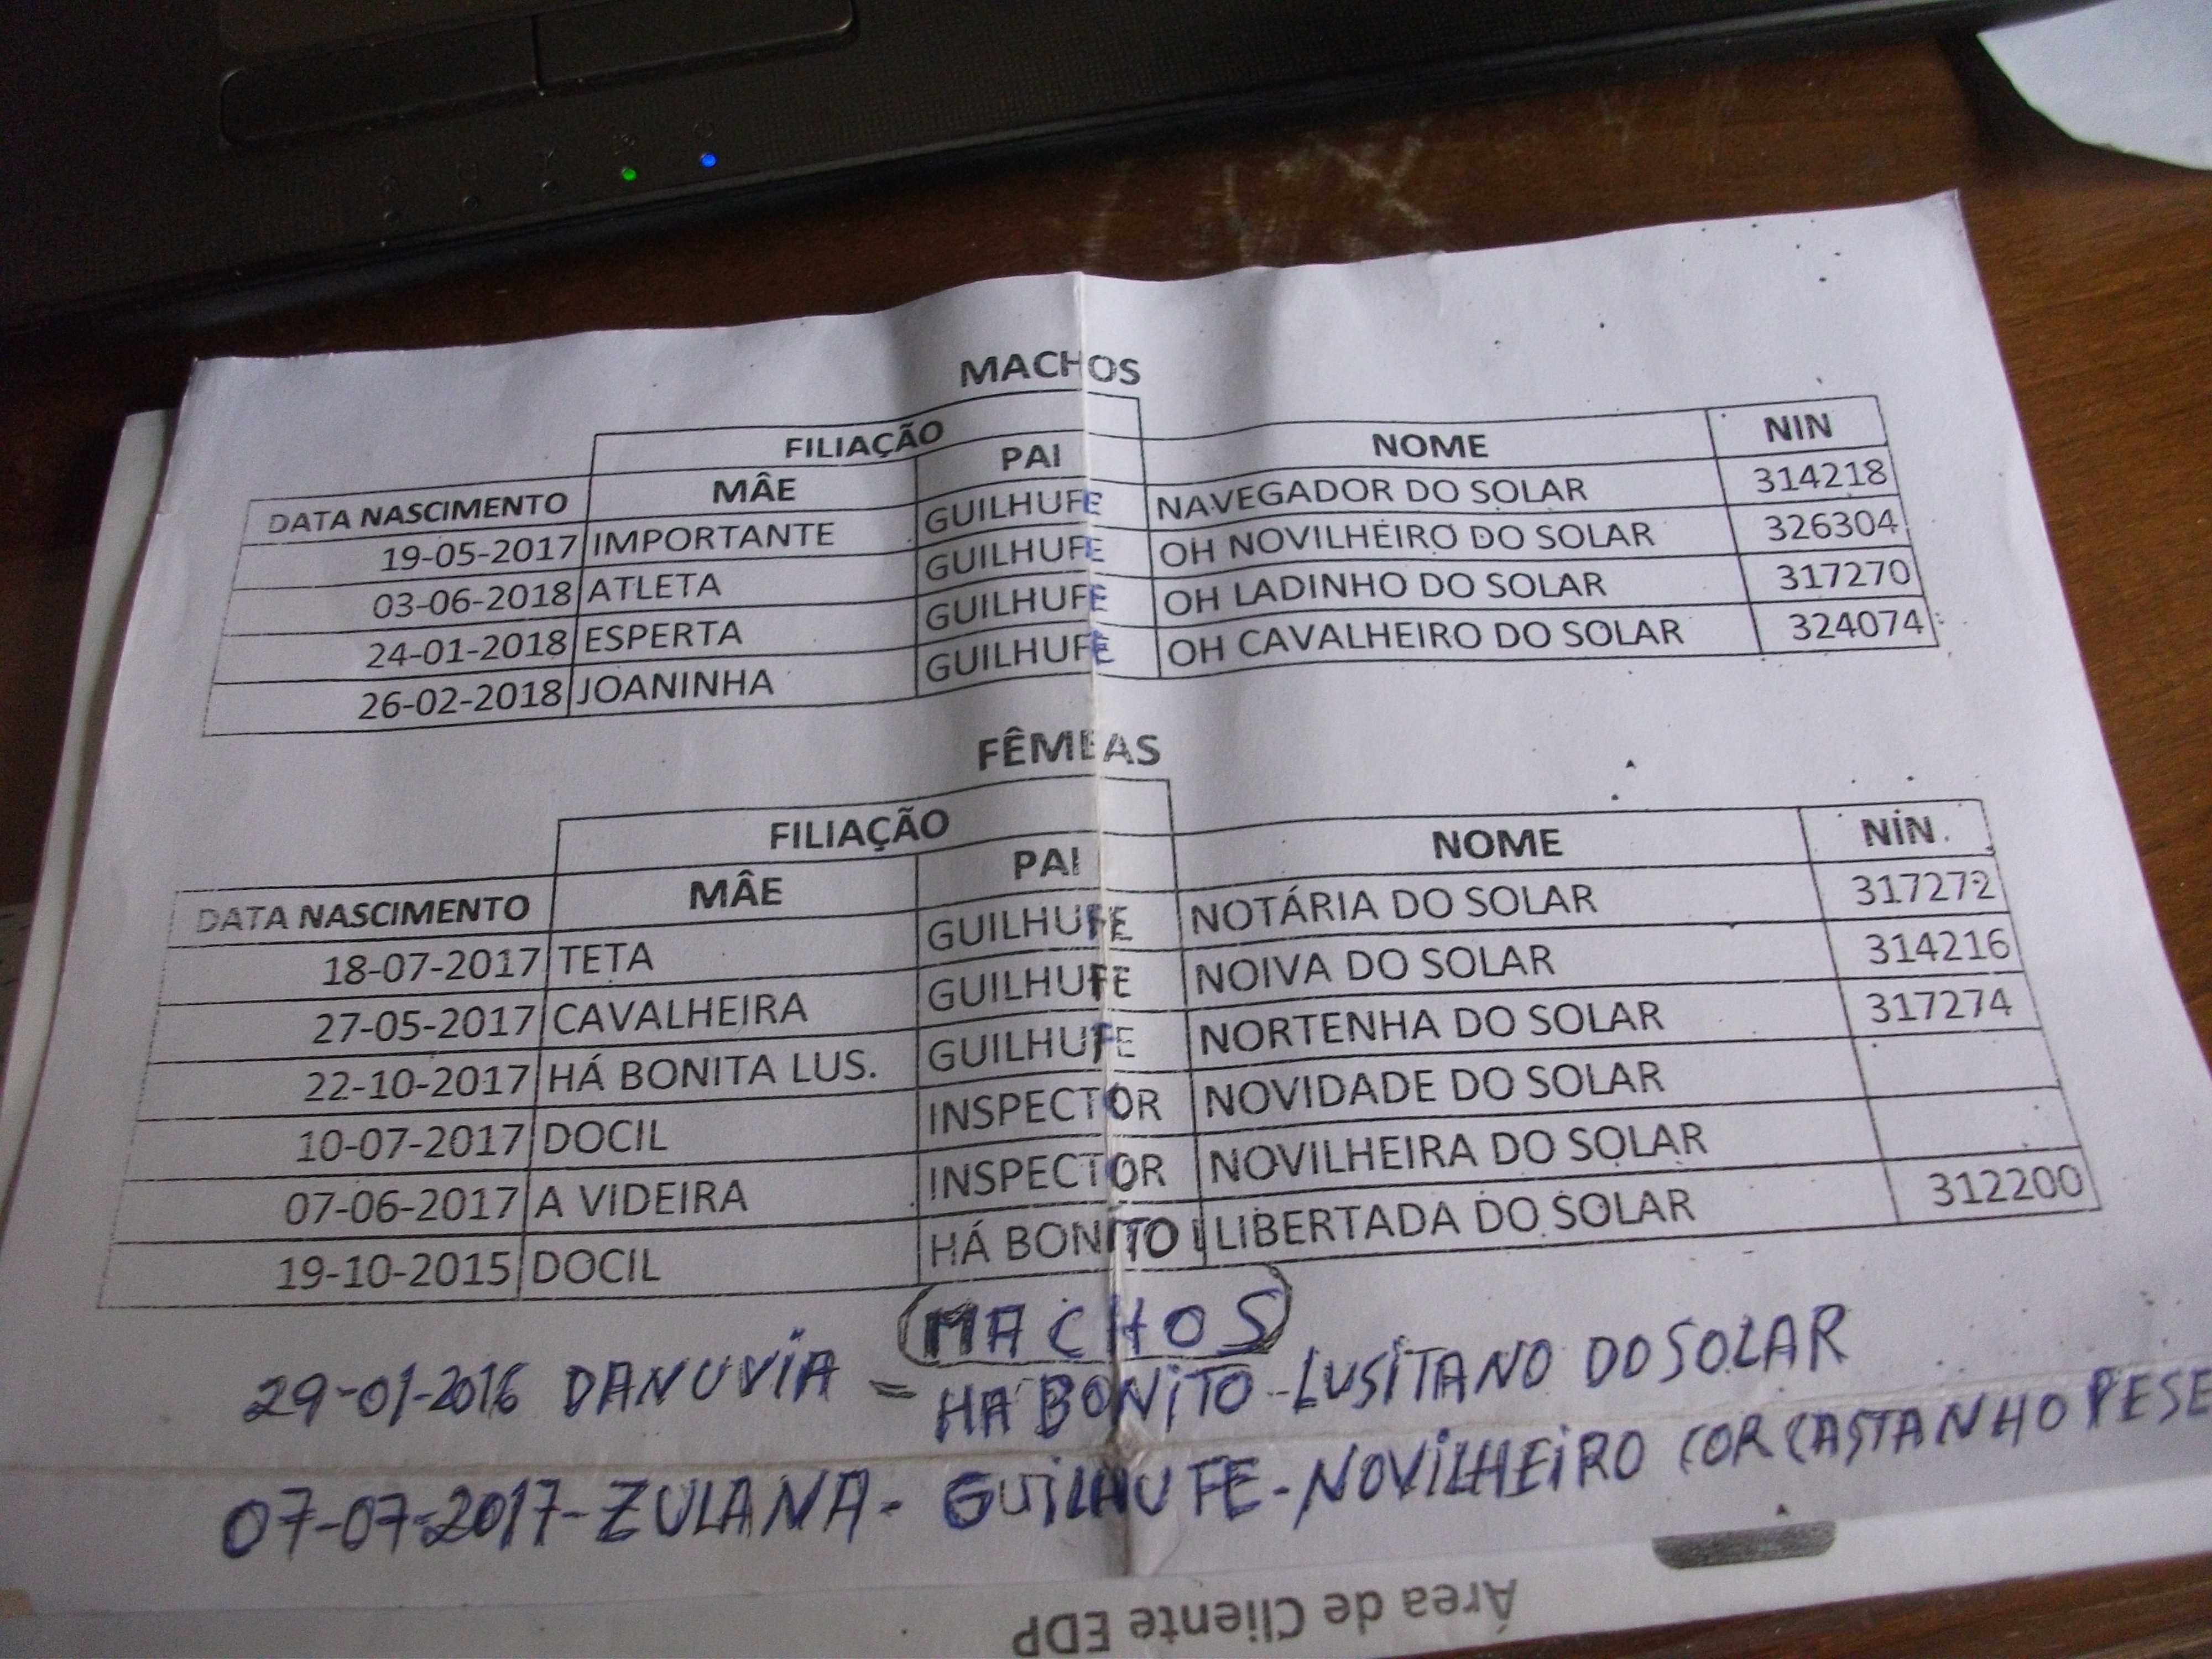 MACHOS
FILIAÇÃO
DATA NASCIMENTO MÂE PAI NOME NIN
19-05-2017 IMPORTANTE GUILHUFE NAVEGADOR DO SOLAR 314218
03-06-2018 ATLETA GUILHUFE OH NOVILHEIRO DO SOLAR 326304
24-01-2018 ESPERTA GUILHUFE OH LADINHO DO SOLAR 317270
26-02-2018 JOANINHA GUILHUFE OH CAVALHEIRO DO SOLAR 324074
FÊMEAS
FILIAÇÃO
DATA NASCIMENTO MÂE PAI NOME NIN
18-07-2017 TETA GUILHUFE NOTÁRIA DO SOLAR 317272
27-05-2017 CAVALHEIRA GUILHUFE NOIVA DO SOLAR 314216
22-10-2017 HÁ BONITA LUS. GUILHUFE NORTENHA DO SOLAR 317274
10-07-2017 DOCIL INSPECTOR NOVIDADE DO SOLAR
07-06-2017 A VIDEIRA INSPECTOR NOVILHEIRA DO SOLAR
19-10-2015 DOCIL HÁ BONITO LIBERTADA DO SOLAR 312200
MACHOS
29-01-2016 DANUVIA = HA BONITO - LUSITANO DO SOLAR
07-07-2017-ZULANA- GUILHUFE-NOVILHEIRO COR CASTANHO PESE
Área de Cliente EDP